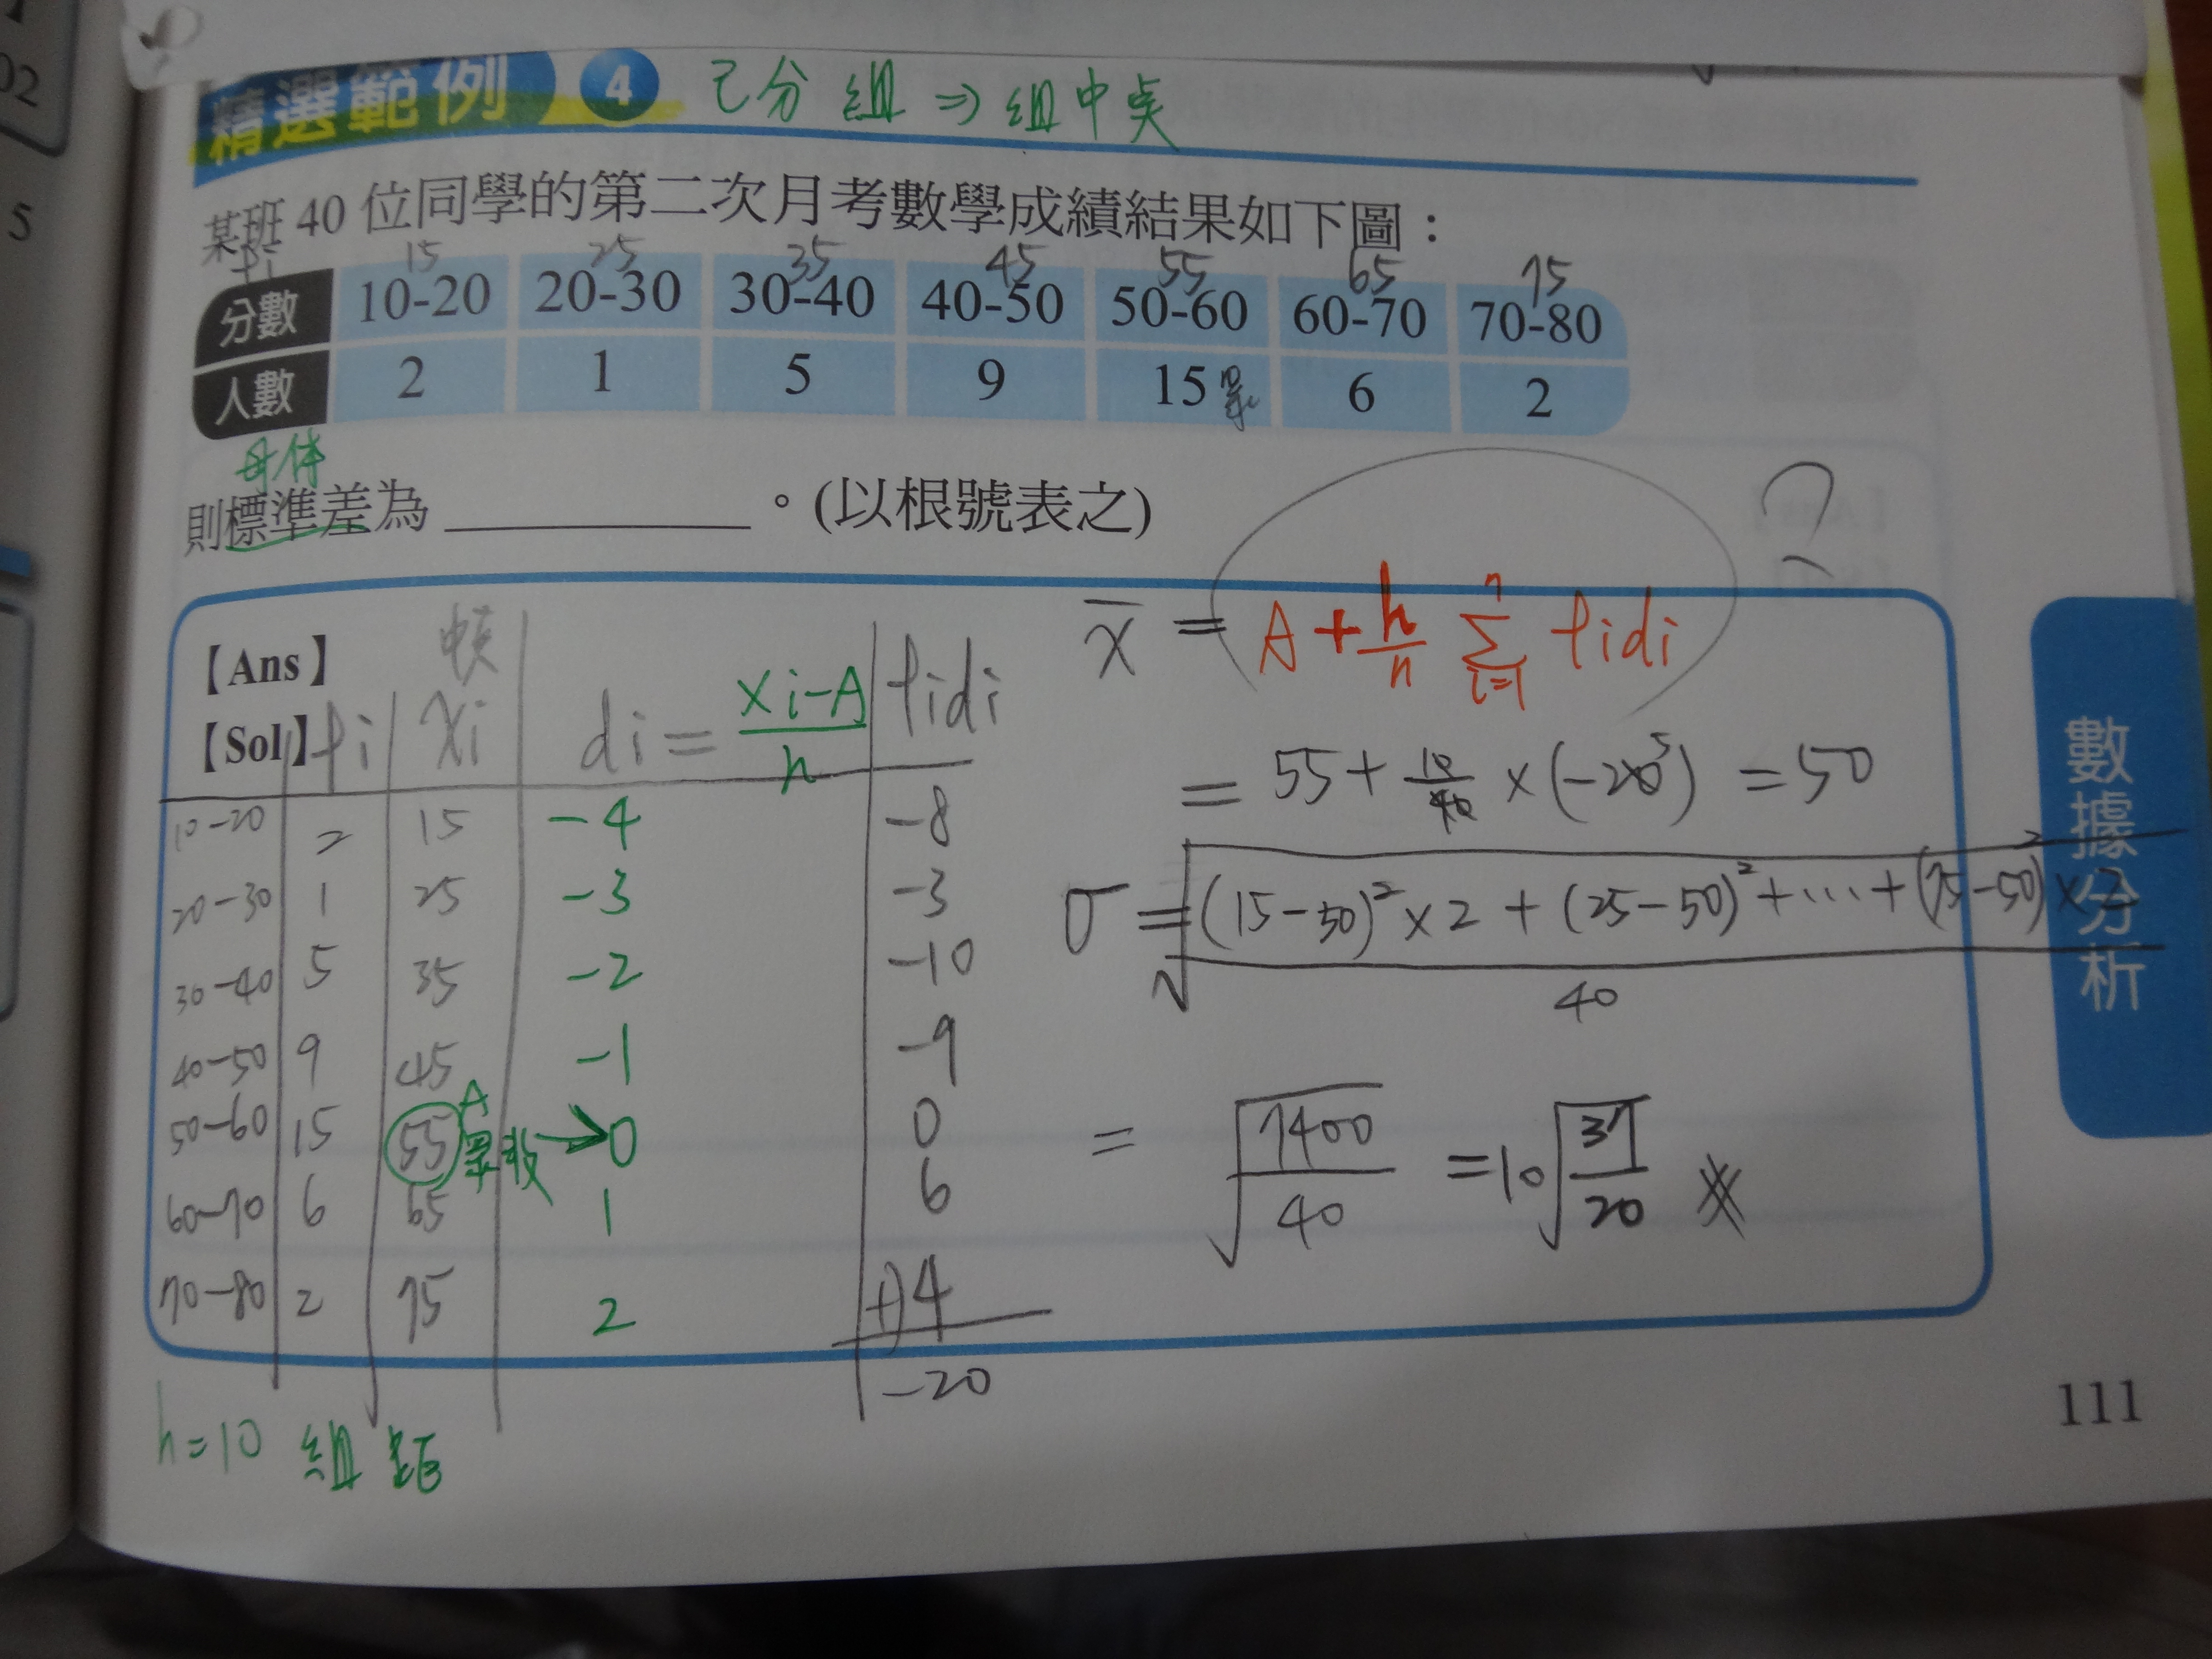 02
5
精選範例 4 已分組⇒組中點
某班 40 位同學的第二次月考數學成績結果如下圖：
fi 15 25 35 45 55 65 75
分數 10-20 20-30 30-40 40-50 50-60 60-70 70-80
人數 2 1 5 9 15眾 6 2
母体
則標準差為 ＿＿＿＿＿。(以根號表之) ?
【Ans】
【Sol】
中点
fi xi di = (xi-A)/h fidi
10-20 2 15 -4 -8
20-30 1 25 -3 -3
30-40 5 35 -2 -10
40-50 9 45 -1 -9
50-60 15 55 A 眾数→0 0
60-70 6 65 1 6
70-80 2 75 2 +)4
-20
h=10 組距
x̄ = A + h/n Σ(i=1→n) fidi
= 55 + 10/40 × (-20) 5 = 50
σ = √((15-50)²×2 + (25-50)² + ... + (75-50)²×2 / 40)
= √(7400/40) = 10√(37/20)
數據分析
111